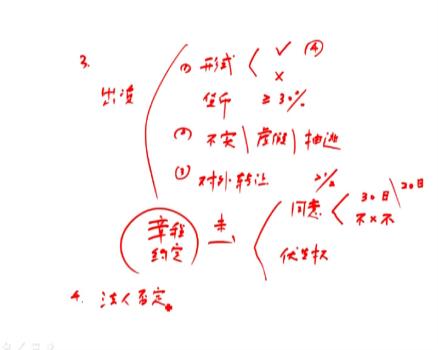 3.
出资
① 形式 ✓ ④
×
货币 ≥30%
② 不实\虚假\抽逃
③ 对外转让
章程约定
同意 30日\20日
不×不
优先权
4. 法人否定